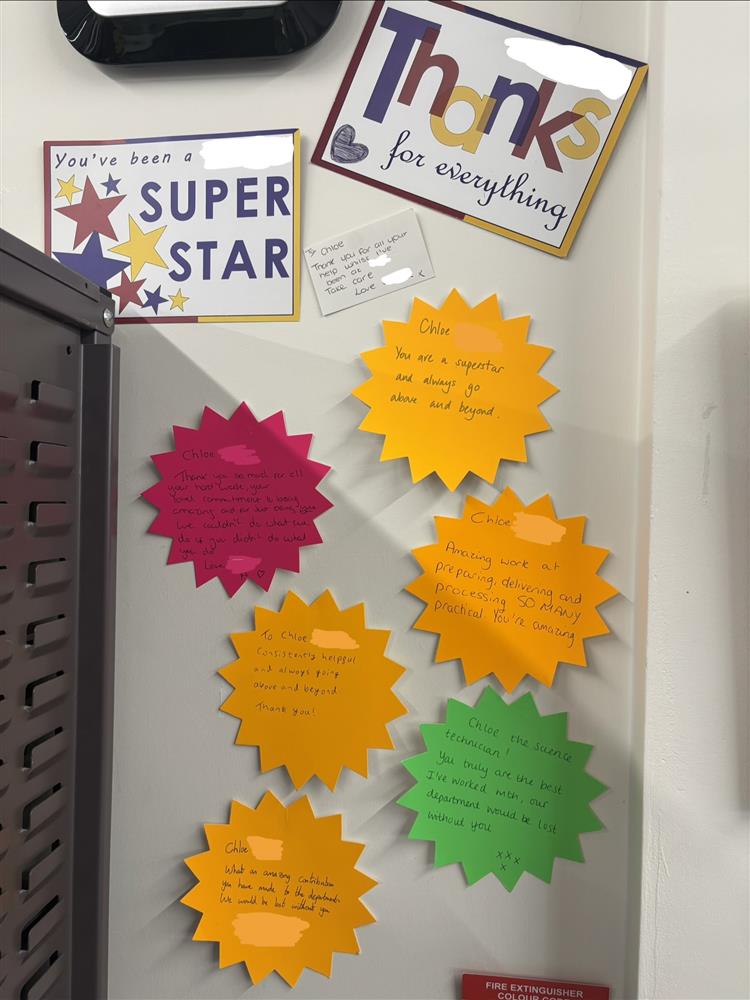 Thanks
for everything
You've been a
SUPER
STAR
To Chloe
Thank you for all your
help whilst I've
been at
Take care
Love x
Chloe
You are a superstar
and always go
above and beyond.
Chloe
Thank you so much for all
your hard work, your
total commitment to being
amazing and for just being you
We couldn't do what we
do if you didn't do what
you do
Love
Chloe
Amazing work at
preparing, delivering and
processing SO MANY
practical. You're amazing
To Chloe
Consistently helpful
and always going
above and beyond
Thank you!
Chloe the science
technician!
You truly are the best
I've worked with, our
department would be lost
without you
x x x
x
Chloe
What an amazing contribution
you have made to the department
We would be lost without you
FIRE EXTINGUISHER